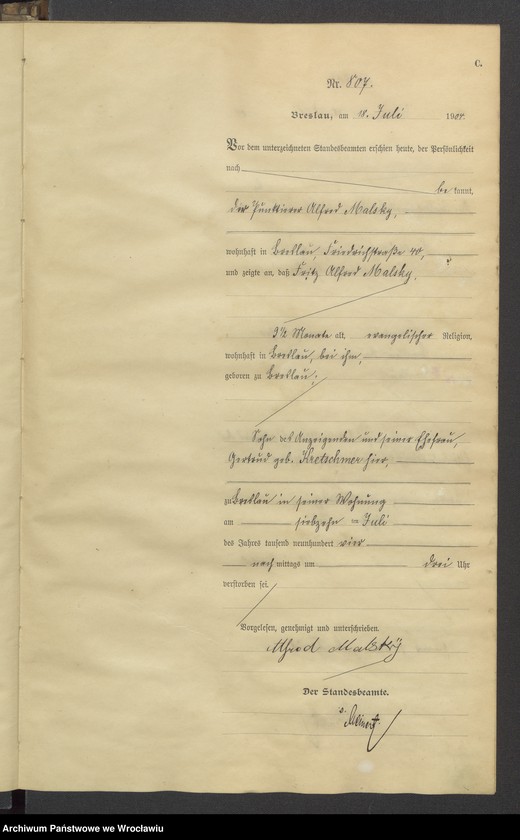 C.
Nr. 807.
Breslau, am 18. Juli 1904.
Vor dem unterzeichneten Standesbeamten erschien heute, der Persönlichkeit
nach
be kannt,
der Alfred Malsky,
wohnhaft in Breslau, Friedrichstraße 40,
und zeigte an, daß Fritz Alfred Malsky,
9 Monate alt, evangelischer Religion,
wohnhaft in Breslau, bei ihm,
geboren zu Breslau,
Sohn des Anzeigenden und seiner Ehefrau,
Gertrud geb. Kretschmer hier,
zu Breslau in seiner Wohnung
am siebzehn ten Juli
des Jahres tausend neunhundert vier
nach mittags um drei Uhr
verstorben sei.
Vorgelesen, genehmigt und unterschrieben.
Alfred Malsky
Der Standesbeamte.
Archiwum Państwowe we Wrocławiu